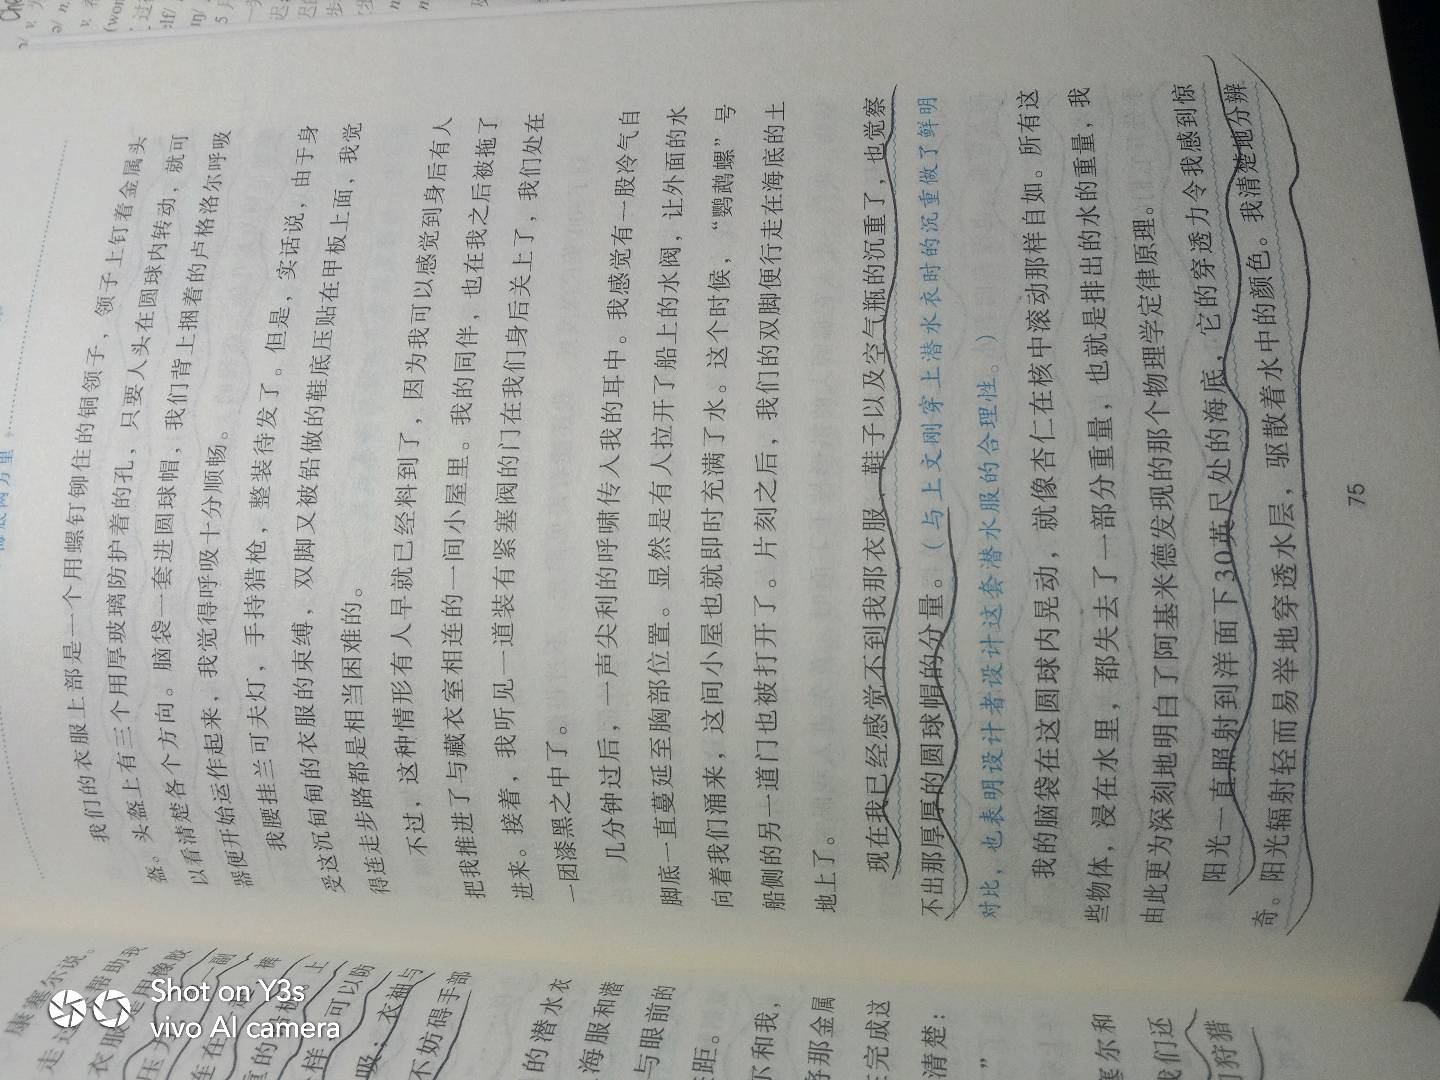 海底两万里
我们的衣服上部是一个用螺钉铆住的铜领子，领子上钉着金属头
盔。头盔上有三个用厚玻璃防护着的孔，只要人头在圆球内转动，就可
以看清楚各个方向。脑袋一套进圆球帽，我们背上捆着的卢格洛尔呼吸
器便开始运作起来，我觉得呼吸十分顺畅。
我腰挂兰可夫灯，手持猎枪，整装待发了。但是，实话说，由于身
受这沉甸甸的衣服的束缚，双脚又被铅做的鞋底压贴在甲板上面，我觉
得连走步路都是相当困难的。
不过，这种情形有人早就已经料到了，因为我可以感觉到身后有人
把我推进了与藏衣室相连的一间小屋里。我的同伴，也在我之后被拖了
进来。接着，我听见一道装有紧塞阀的门在我们身后关上了，我们处在
一团漆黑之中了。
几分钟过后，一声尖利的呼啸传入我的耳中。我感觉有一股冷气自
脚底一直蔓延至胸部位置。显然是有人拉开了船上的水阀，让外面的水
向着我们涌来，这间小屋也就即时充满了水。这个时候，“鹦鹉螺”号
船侧的另一道门也被打开了。片刻之后，我们的双脚便行走在海底的土
地上了。
现在我已经感觉不到我那衣服、鞋子以及空气瓶的沉重了，也觉察
不出那厚厚的圆球帽的分量。（与上文刚穿上潜水衣时的沉重做了鲜明
对比，也表明设计者设计这套潜水服的合理性。）
我的脑袋在这圆球内晃动，就像杏仁在核中滚动那样自如。所有这
些物体，浸在水里，都失去了一部分重量，也就是排出的水的重量，我
由此更为深刻地明白了阿基米德发现的那个物理学定律原理。
阳光一直照射到洋面下30英尺处的海底，它的穿透力令我感到惊
奇。阳光辐射轻而易举地穿透水层，驱散着水中的颜色。我清楚地分辨
75
康塞尔说。
帮助我
用橡胶
一副
裤
上
可以防
吸；衣袖与
不妨碍手部
的潜水衣
海服和潜
与眼前的
距。
尔和我，
将那金属
在完成这
清楚：
”
塞尔和
我们还
狩猎
Shot on Y3s
vivo AI camera